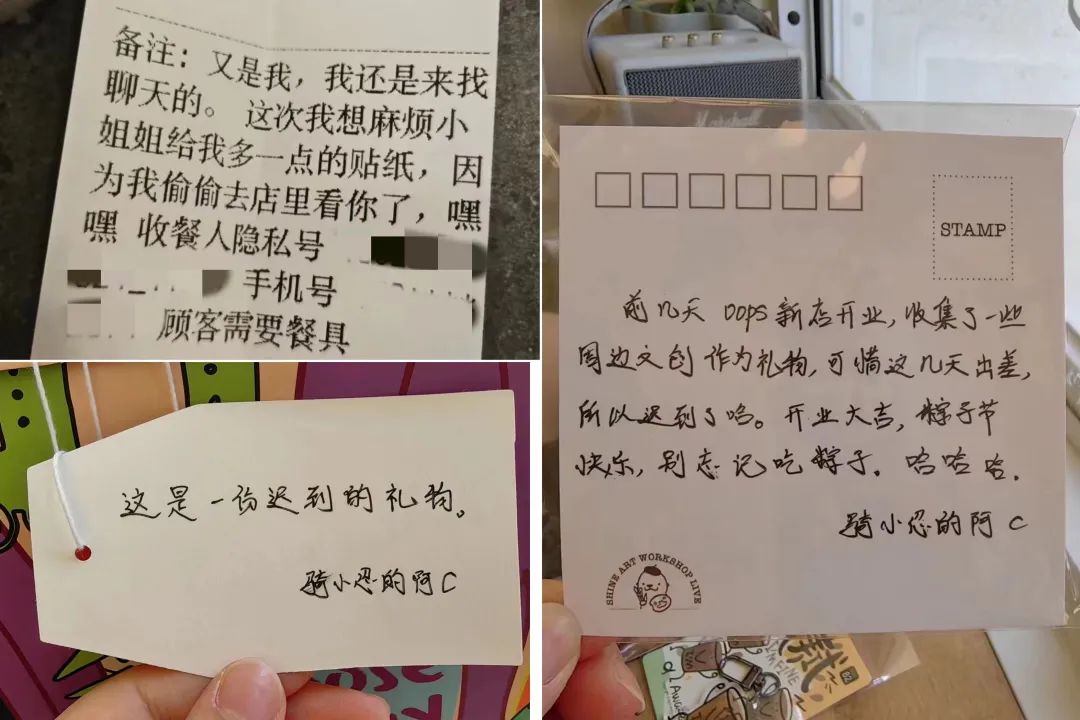 备注：又是我，我还是来找
聊天的。 这次我想麻烦小
姐姐给我多一点的贴纸，因
为我偷偷去店里看你了，嘿
嘿 收餐人隐私号
手机号
顾客需要餐具
这是一份迟到的礼物。
骑小忍的阿C
STAMP
前几天 OOPS 新店开业，收集了一些
周边文创作为礼物，可惜这几天出差，
所以迟到了哈。开业大吉，粽子节
快乐，别忘记吃粽子。哈哈哈.
骑小忍的阿C
SHINE ART WORKSHOP LIVE